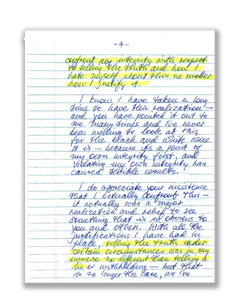 -4-
confront my integrity with respect
to telling the truth and how I
hate myself about this no matter
how I justify it.
I know I have taken a long
time to have this realization –
and you have pointed it out to
me many times and I've never
been willing to look at this
for the black and white issue
it is – because it's a point of
my own integrity first, and
violating my own integrity has
caused terrible results!
I do appreciate your insistence
that I actually confront this –
it actually was a major
realization and relief to see
something that is so obvious to
you and others. With all the
justifications I have had in
place, telling the truth under
certain circumstances was in my
universe no different than telling a
lie or withholding – but that
is no longer the case, as I've